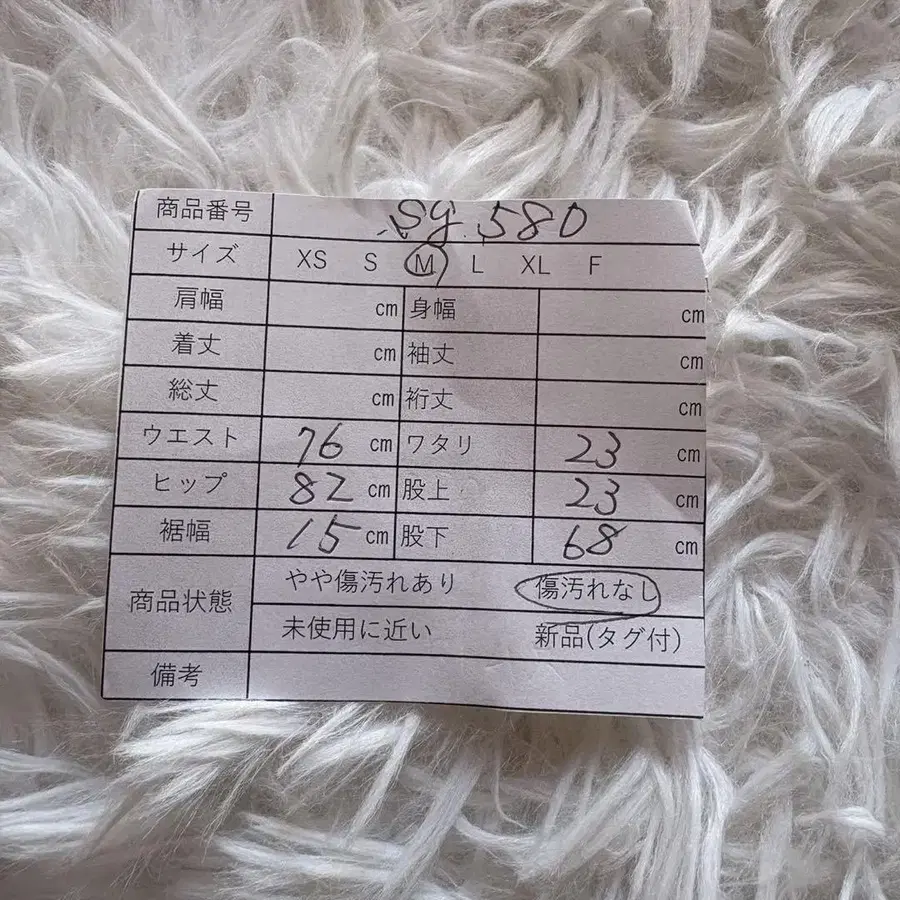 商品番号 sg.580
サイズ XS S M L XL F
肩幅 cm 身幅 cm
着丈 cm 袖丈 cm
総丈 cm 裄丈 cm
ウエスト 76 cm ワタリ 23 cm
ヒップ 82 cm 股上 23 cm
裾幅 15 cm 股下 68 cm
商品状態 やや傷汚れあり 傷汚れなし
未使用に近い 新品(タグ付)
備考